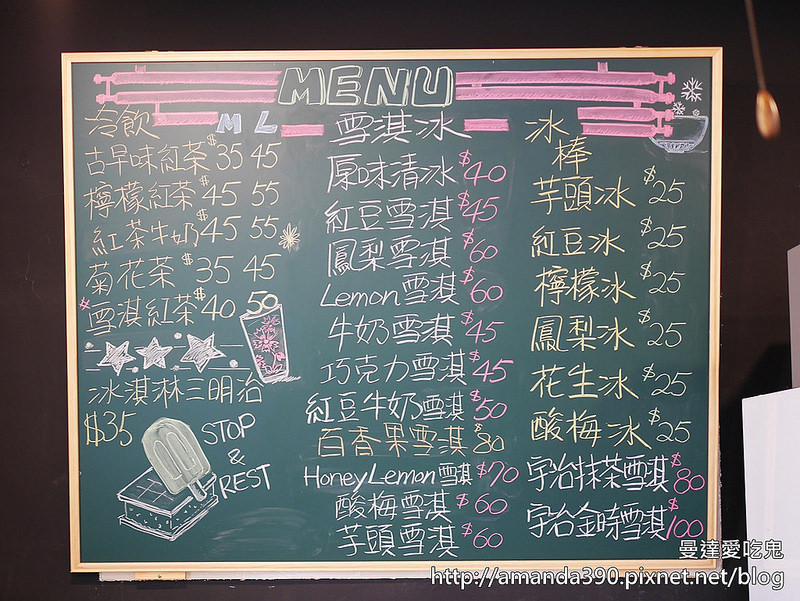 MENU
冷飲 M L
古早味紅茶 $35 45
檸檬紅茶 $45 55
紅茶牛奶 $45 55
菊花茶 $35 45
*雪淇紅茶 $40 50
冰淇淋三明治
$35
STOP
&
REST
雪淇冰
原味清冰 $40
紅豆雪淇 $45
鳳梨雪淇 $60
Lemon雪淇 $60
牛奶雪淇 $45
巧克力雪淇 $45
紅豆牛奶雪淇 $50
百香果雪淇 $80
Honey Lemon雪淇 $70
酸梅雪淇 $60
芋頭雪淇 $60
冰棒
芋頭冰 $25
紅豆冰 $25
檸檬冰 $25
鳳梨冰 $25
花生冰 $25
酸梅冰 $25
宇治抹茶雪淇 $80
宇治金時雪淇 $100
曼達愛吃鬼
http://amanda390.pixnet.net/blog